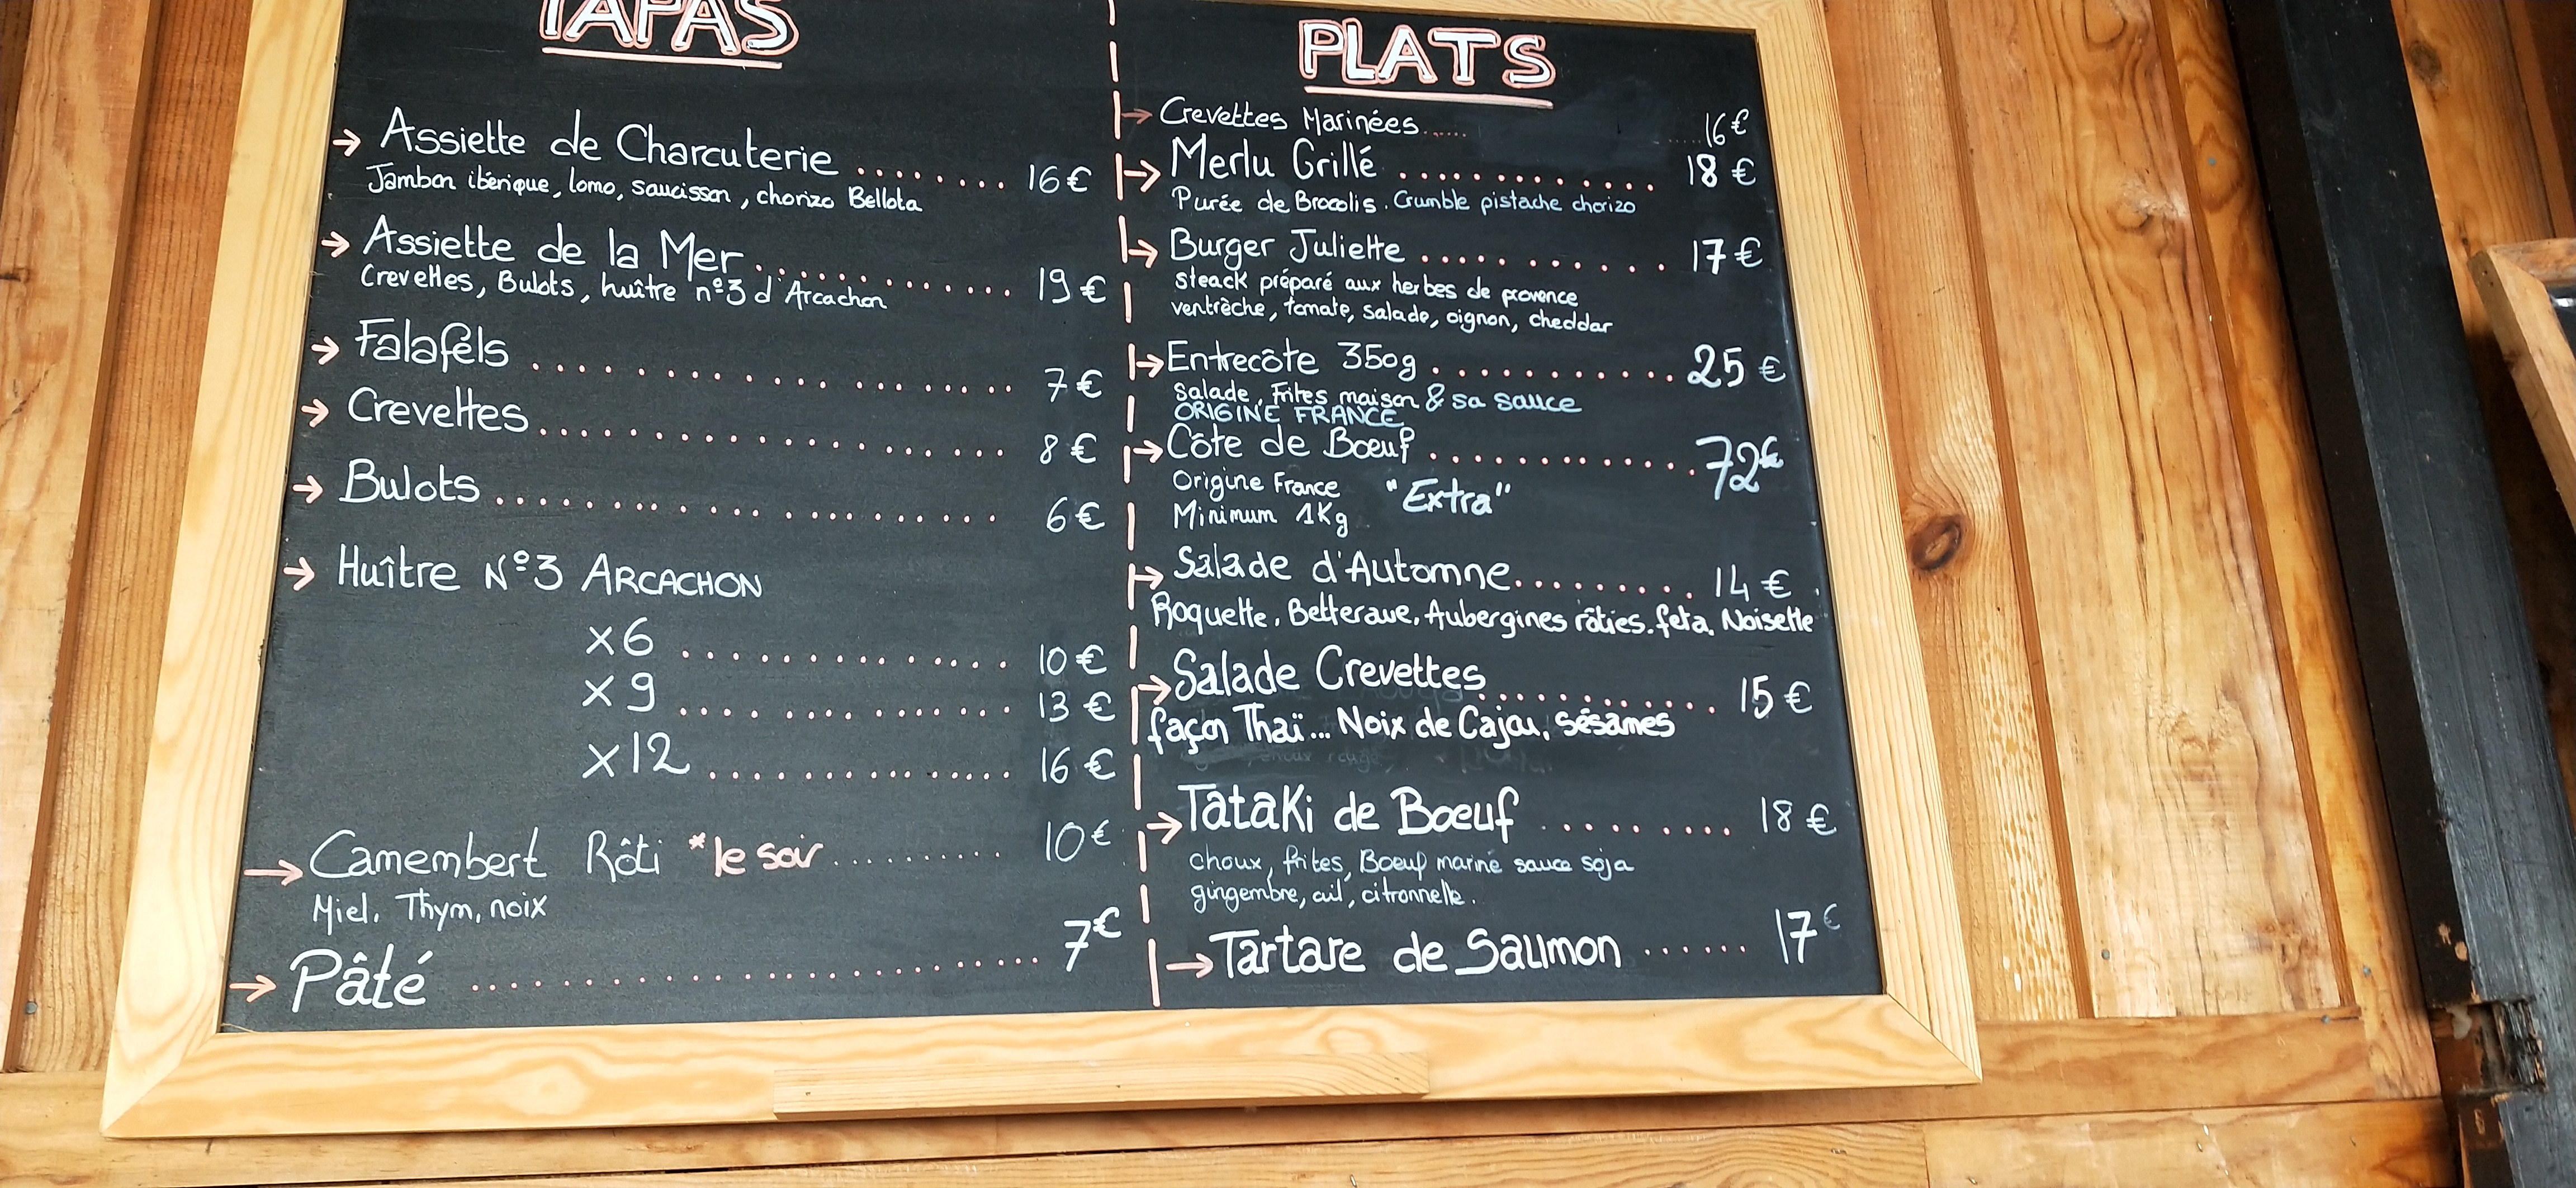 TAPAS
→ Assiette de Charcuterie ........ 16€
Jambon ibérique, lomo, saucisson, chorizo Bellota
→ Assiette de la Mer............ 19€
Crevettes, Bulots, huître nº3 d'Arcachon
→ Falaféls ................... 7€
→ Crevettes................... 8€
→ Bulots................... 6€
→ Huître Nº3 ARCACHON
x6 .............. 10€
x9 .............. 13€
x12 .............. 16€
→ Camembert Rôti *le soir.......... 10€
Miel, Thym, noix
→ Pâté ..................... 7€
PLATS
→ Crevettes Marinées..... .....16€
→ Merlu Grillé ............. 18€
Purée de Brocolis. Crumble pistache chorizo
→ Burger Juliette ........... 17€
Steack préparé aux herbes de provence
ventrèche, tomate, salade, oignon, cheddar
→ Entrecôte 350g ............ 25€
Salade, Frites maison & sa sauce
ORIGINE FRANCE
→ Côte de Boeuf ............. 72€
Origine France "Extra"
Minimum 1Kg
→ Salade d'Automne......... 14€
Roquette, Betterave, Aubergines rôties. feta, Noisette
→ Salade Crevettes ........... 15€
façon Thaï... Noix de Cajou, sésames
→ Tataki de Boeuf ......... 18€
choux, frites, Boeuf mariné sauce soja
gingembre, ail, citronnelle.
→ Tartare de Saumon ...... 17€